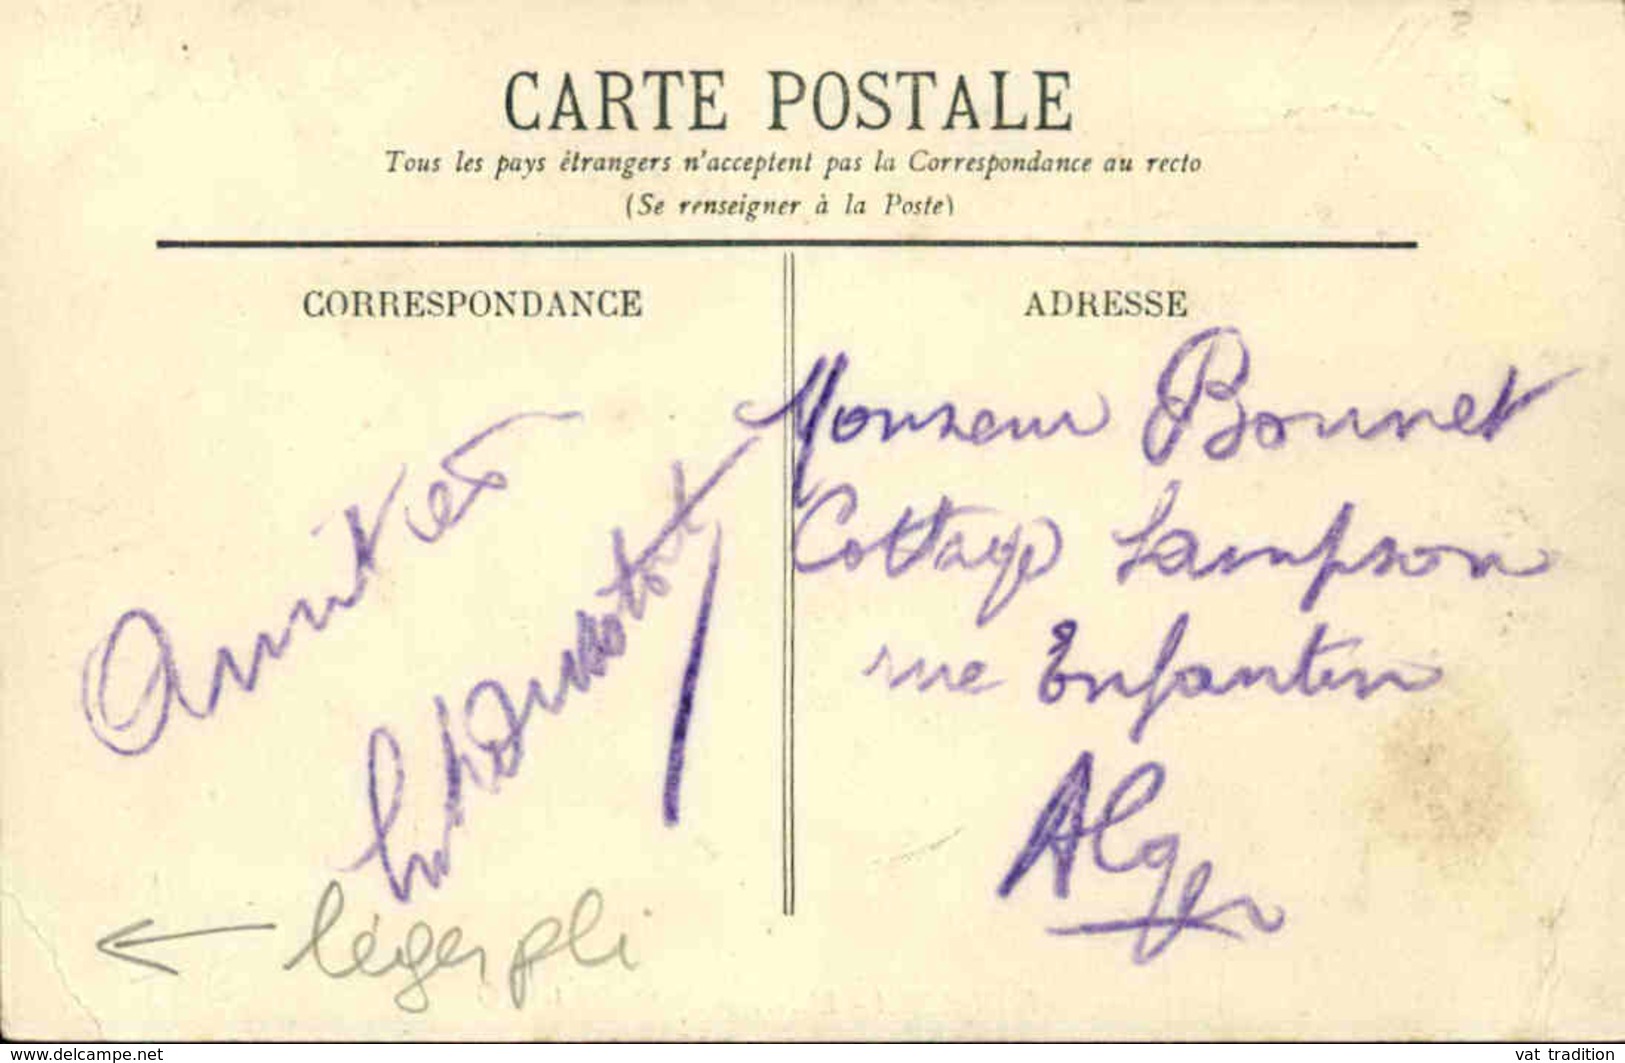 CARTE POSTALE
Tous les pays étrangers n'acceptent pas la Correspondance au recto
(Se renseigner à la Poste)
CORRESPONDANCE
Amitiés
léger pli
ADRESSE
Monsieur Bonnet
Cottage Sampson
rue Enfantin
Alger
www.delcampe.net
vat tradition